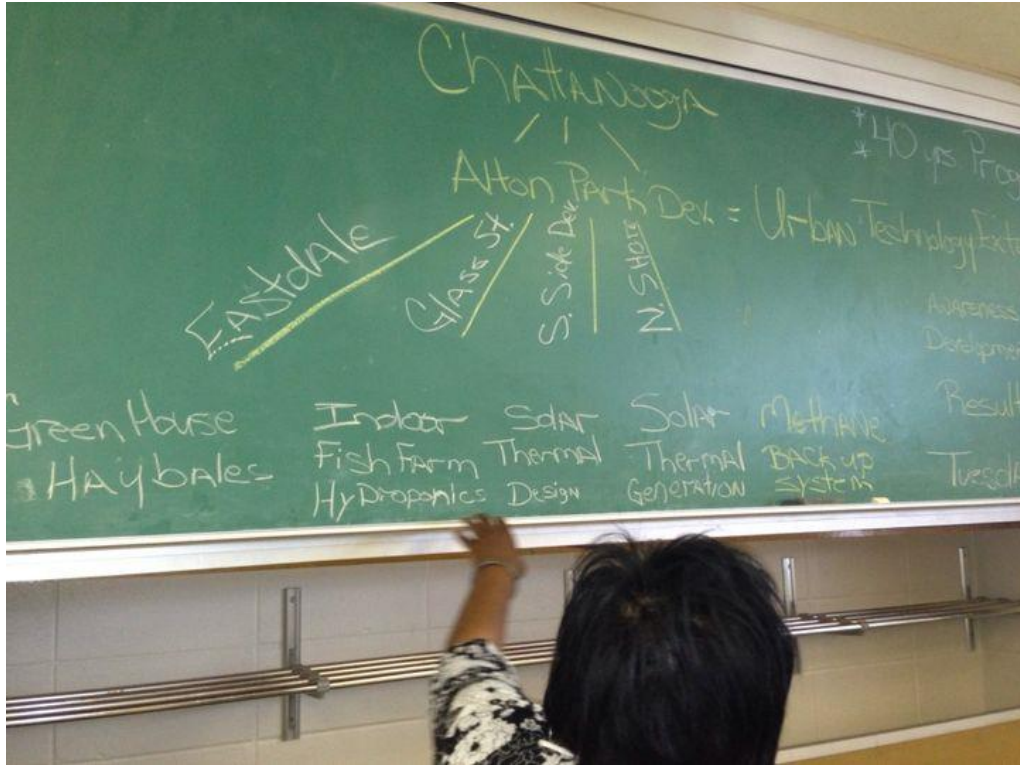 Chattanooga
* 40 yrs
*
Alton Park Dev. = Urban Technology
Eastdale
Glass St.
S. Side Dev.
N. Shore
Awareness
Green House
Haybales
Indoor
Fish Farm
Hydroponics
Solar
Thermal
Design
Solar
Thermal
Generation
Methane
Back up
System
Result